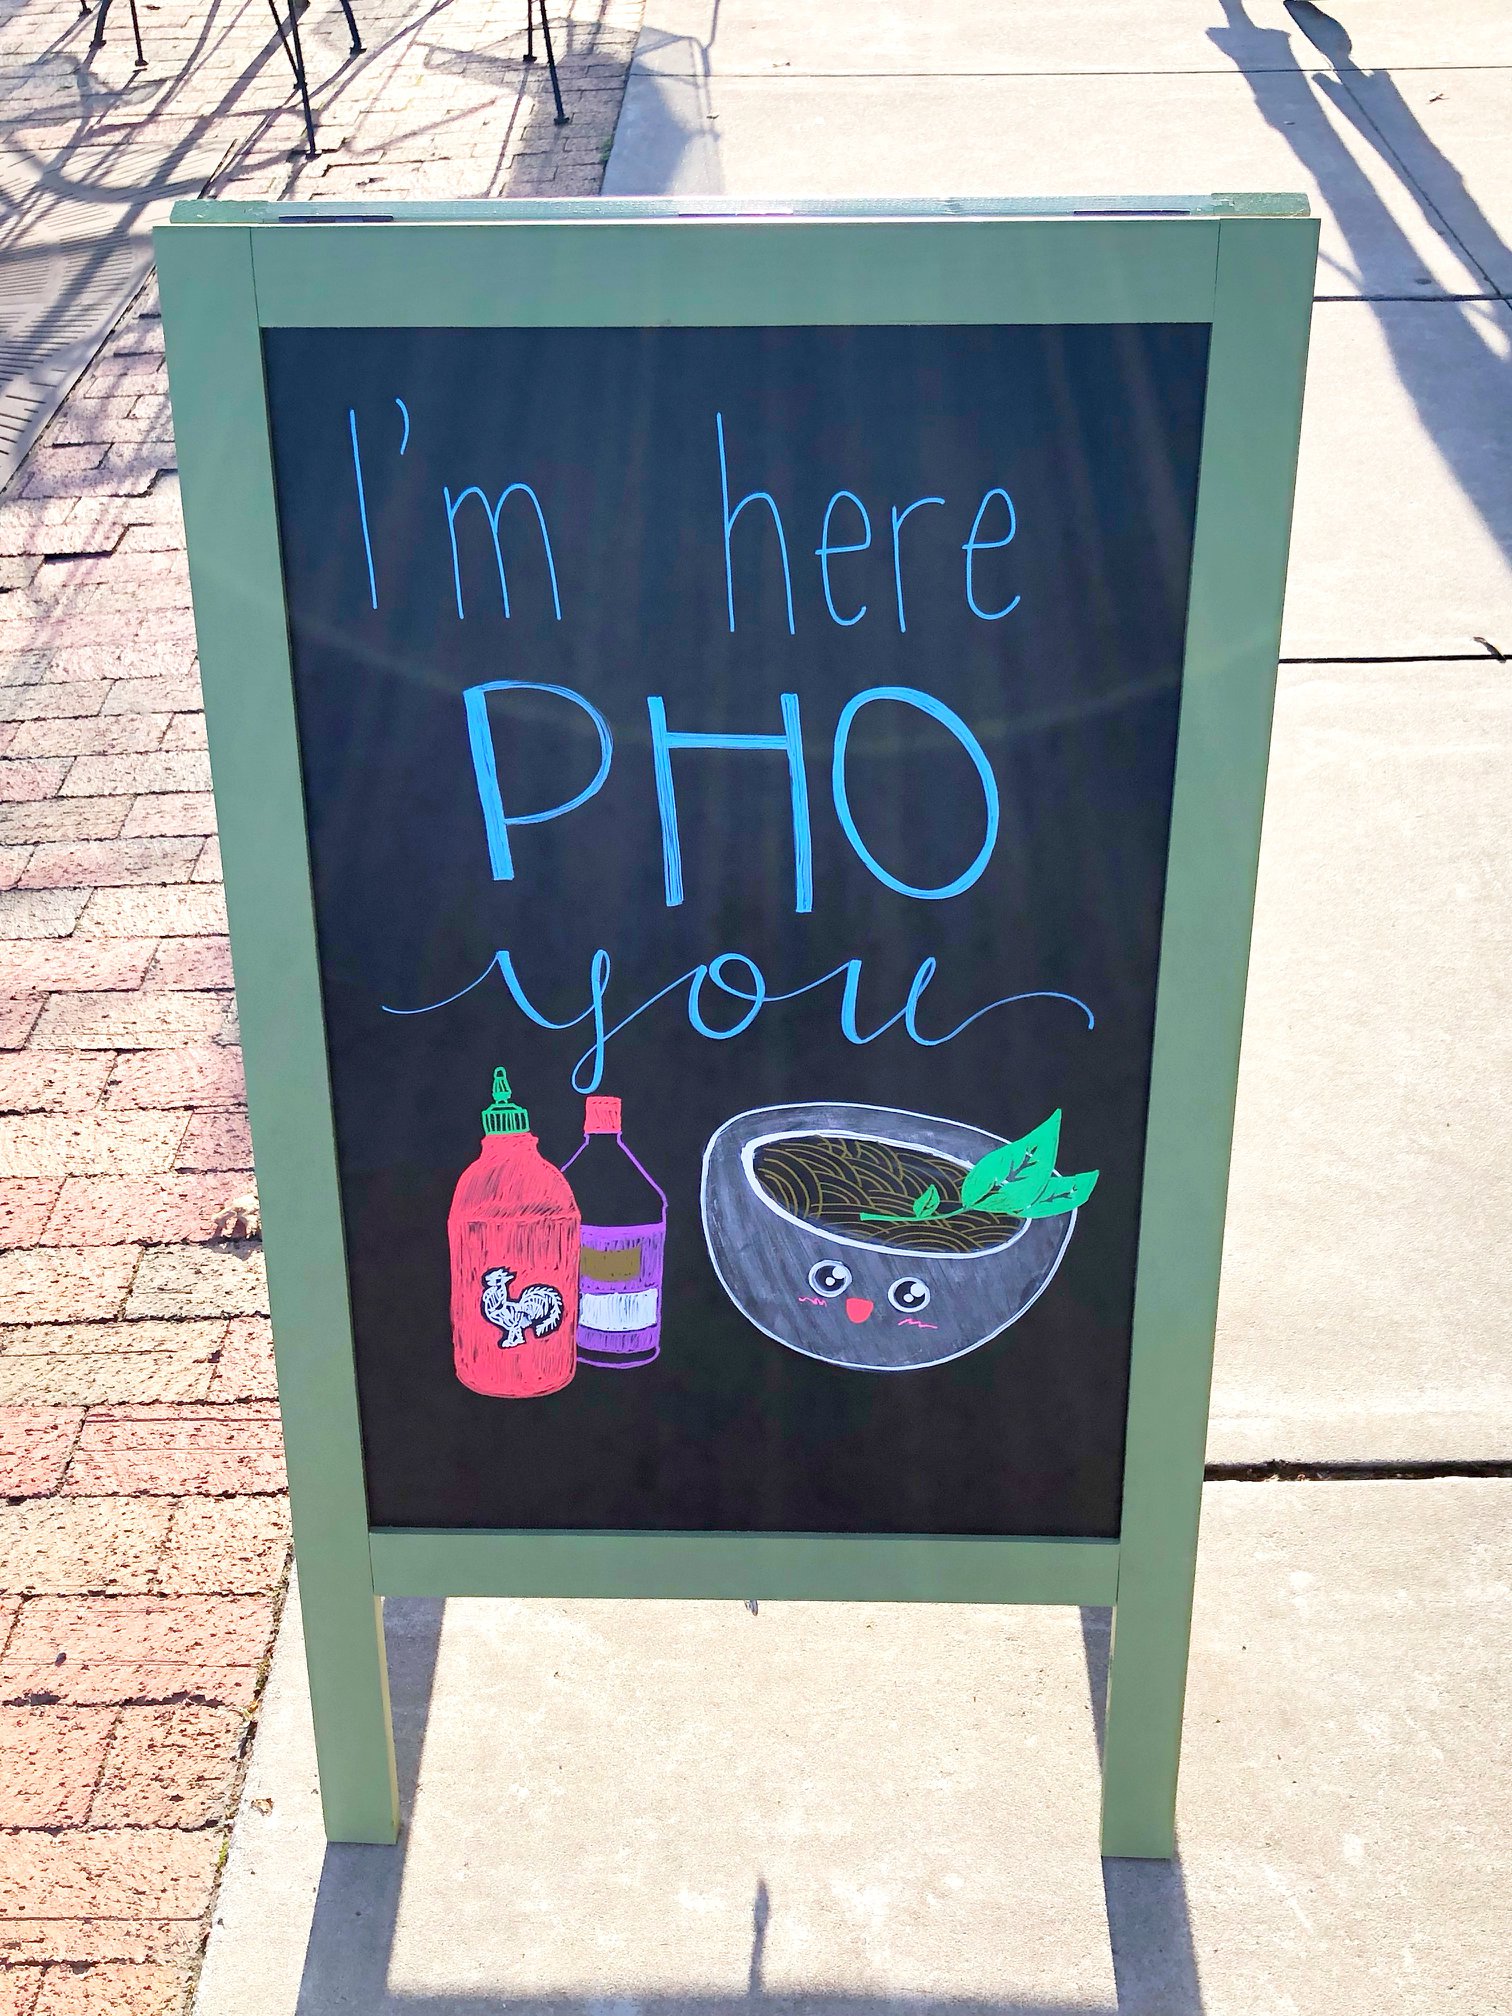 I'm here
PHO
you